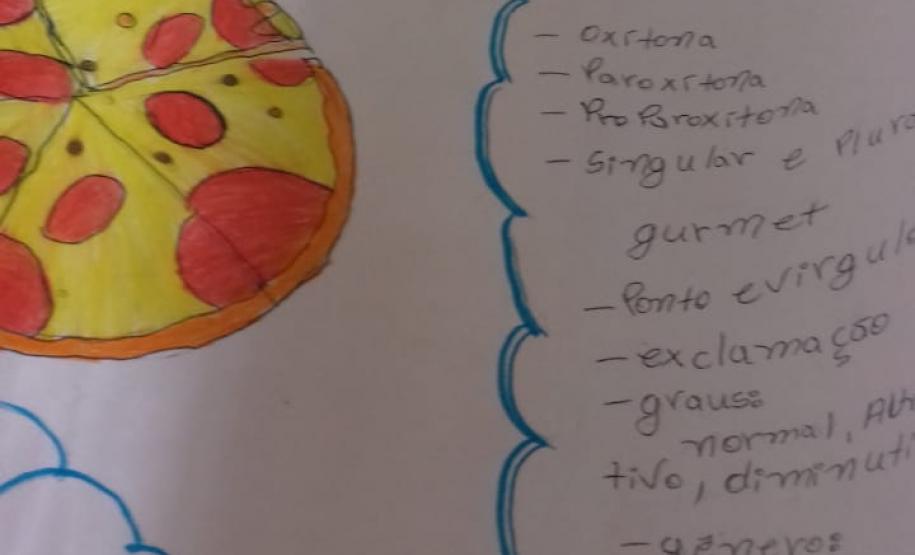 - Oxítona
- Paroxítona
- Proparoxítona
- Singular e
gurmet
- Ponto e virgula
- exclamação
- graus:
normal,
tivo,
- gêneros